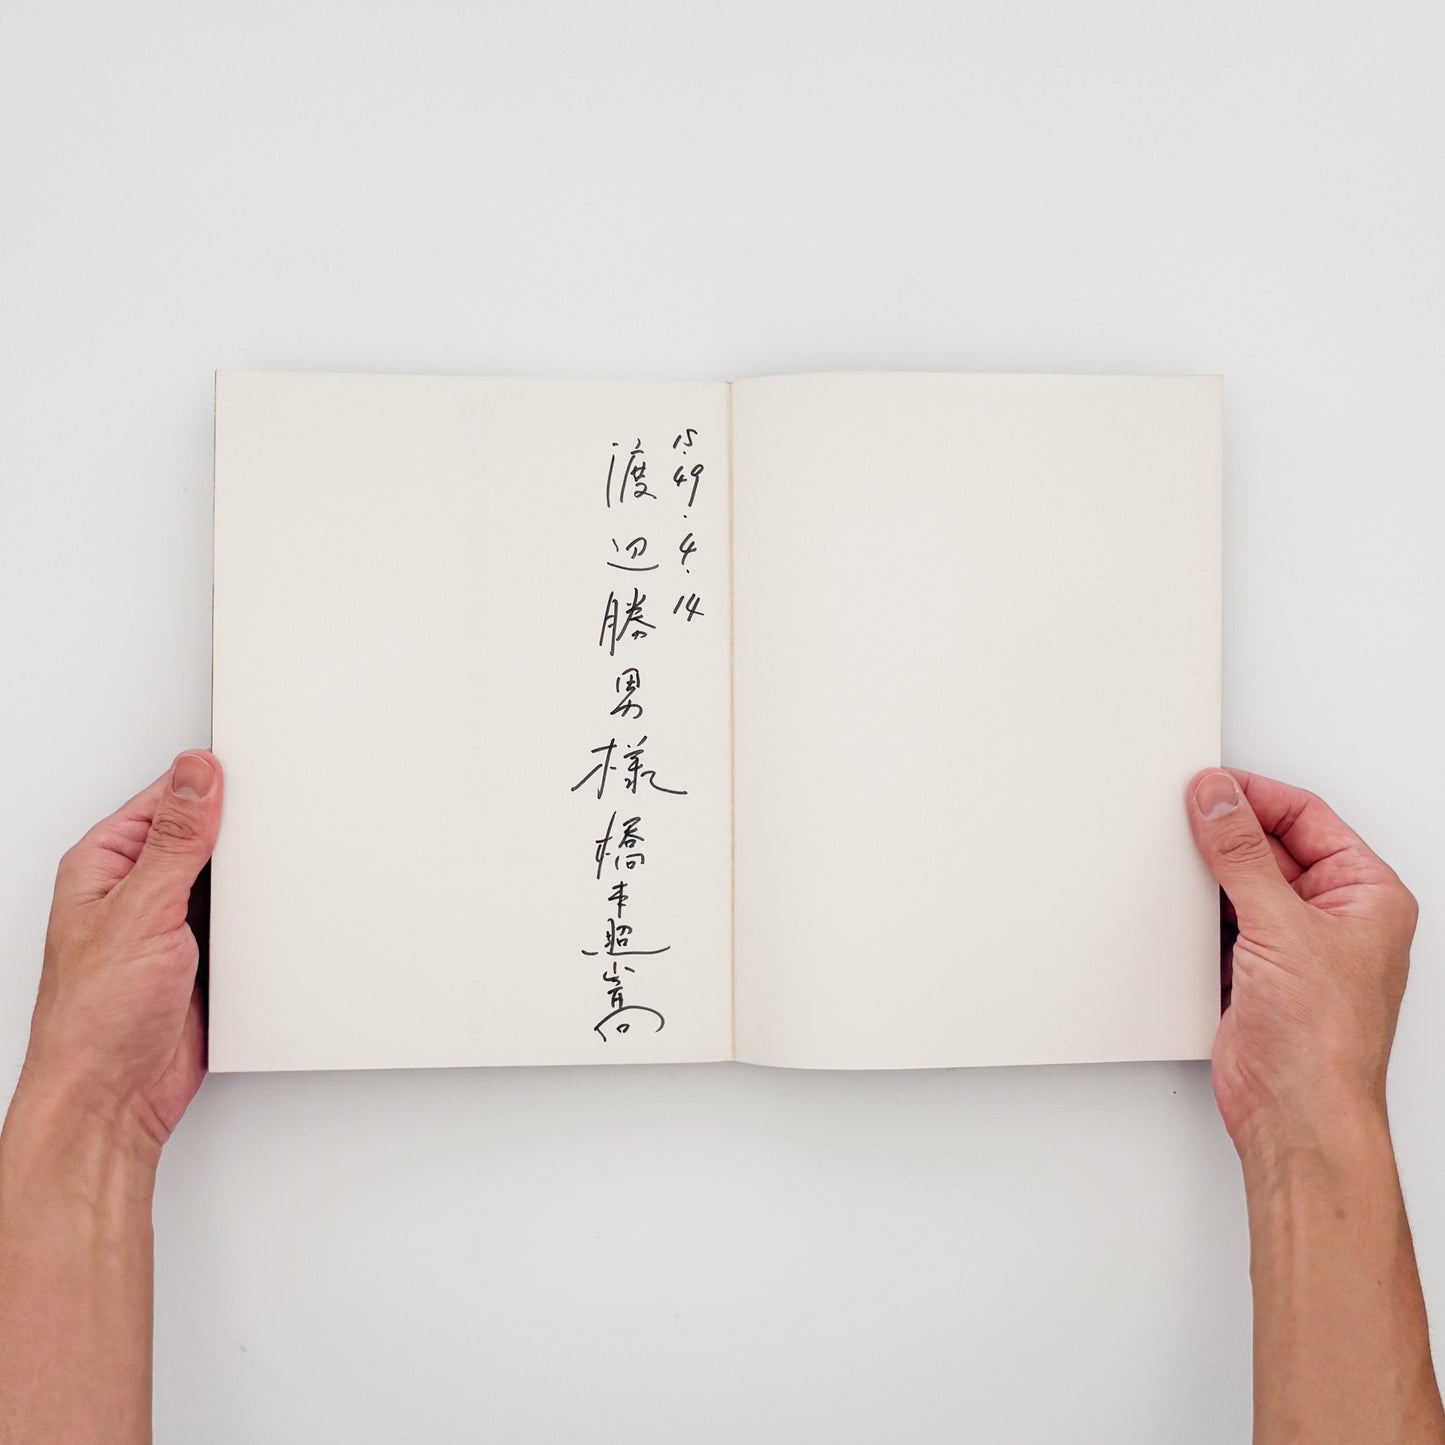 S.49.4.14
渡辺勝男様
橋本照嵩